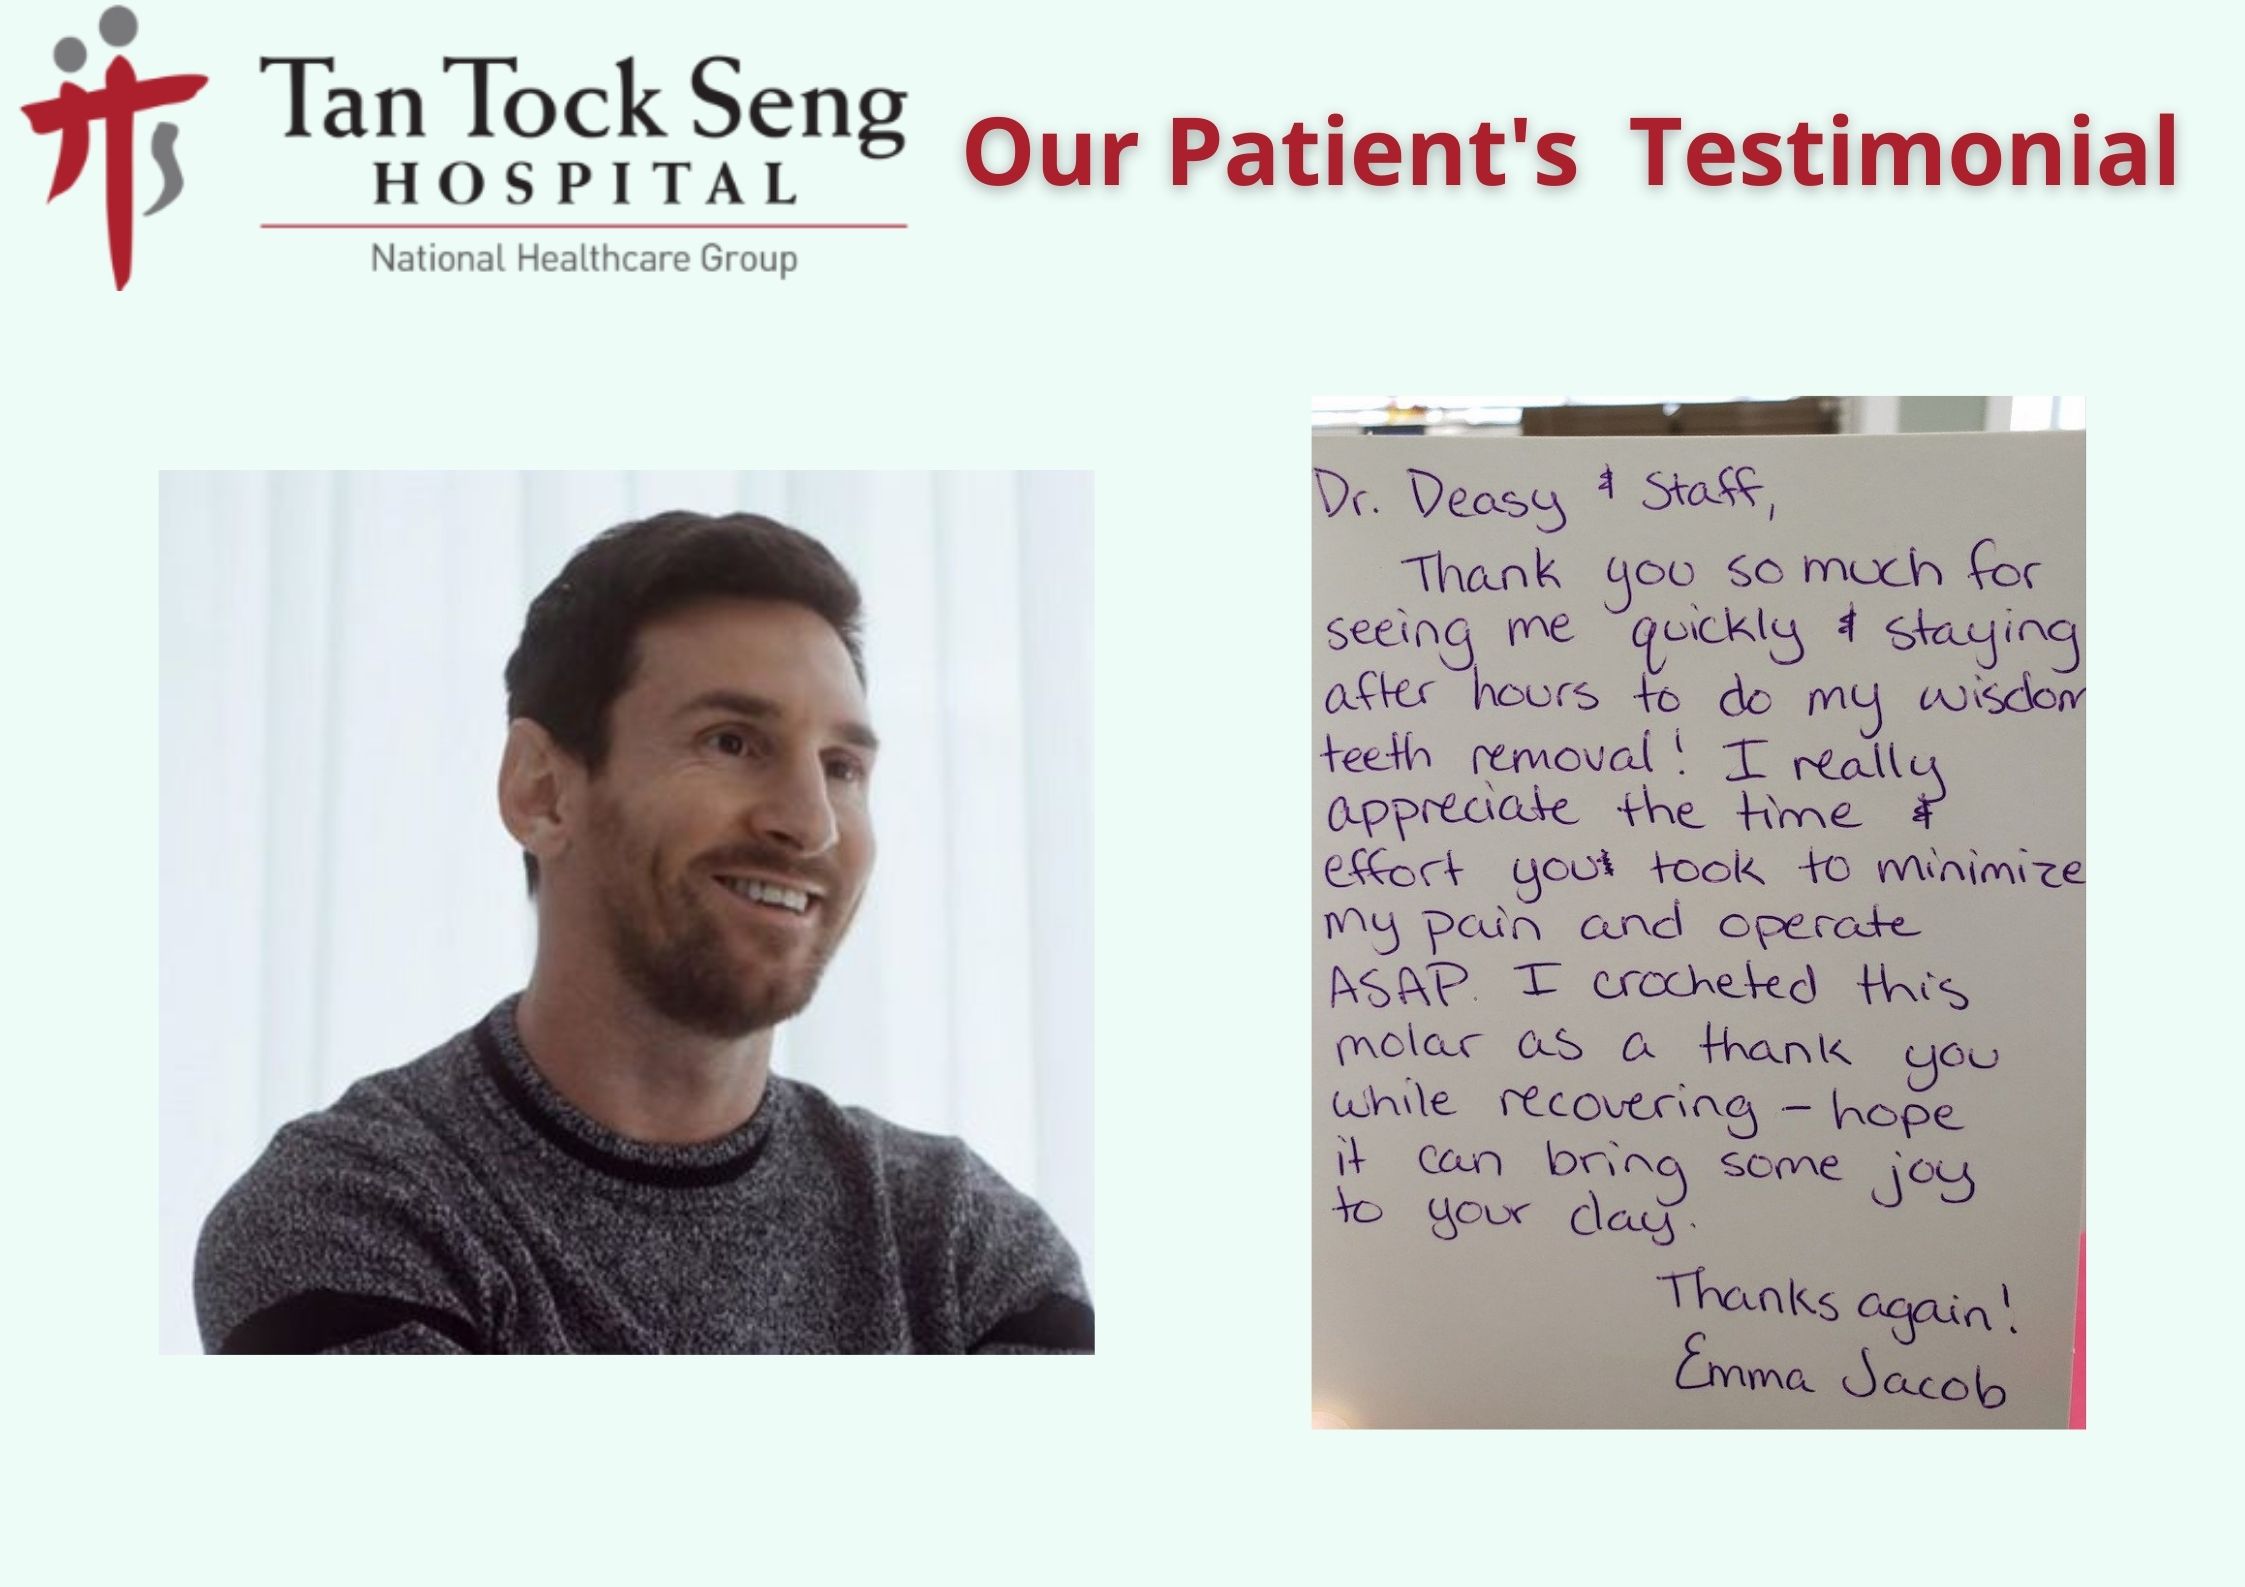 Tan Tock Seng
HOSPITAL
National Healthcare Group
Our Patient's Testimonial
Dr. Deasy & Staff,
Thank you so much for
seeing me quickly & staying
after hours to do my wisdom
teeth removal! I really
appreciate the time &
effort you took to minimize
my pain and operate
ASAP. I crocheted this
molar as a thank you
while recovering - hope
it can bring some joy
to your day.
Thanks again!
Emma Jacob